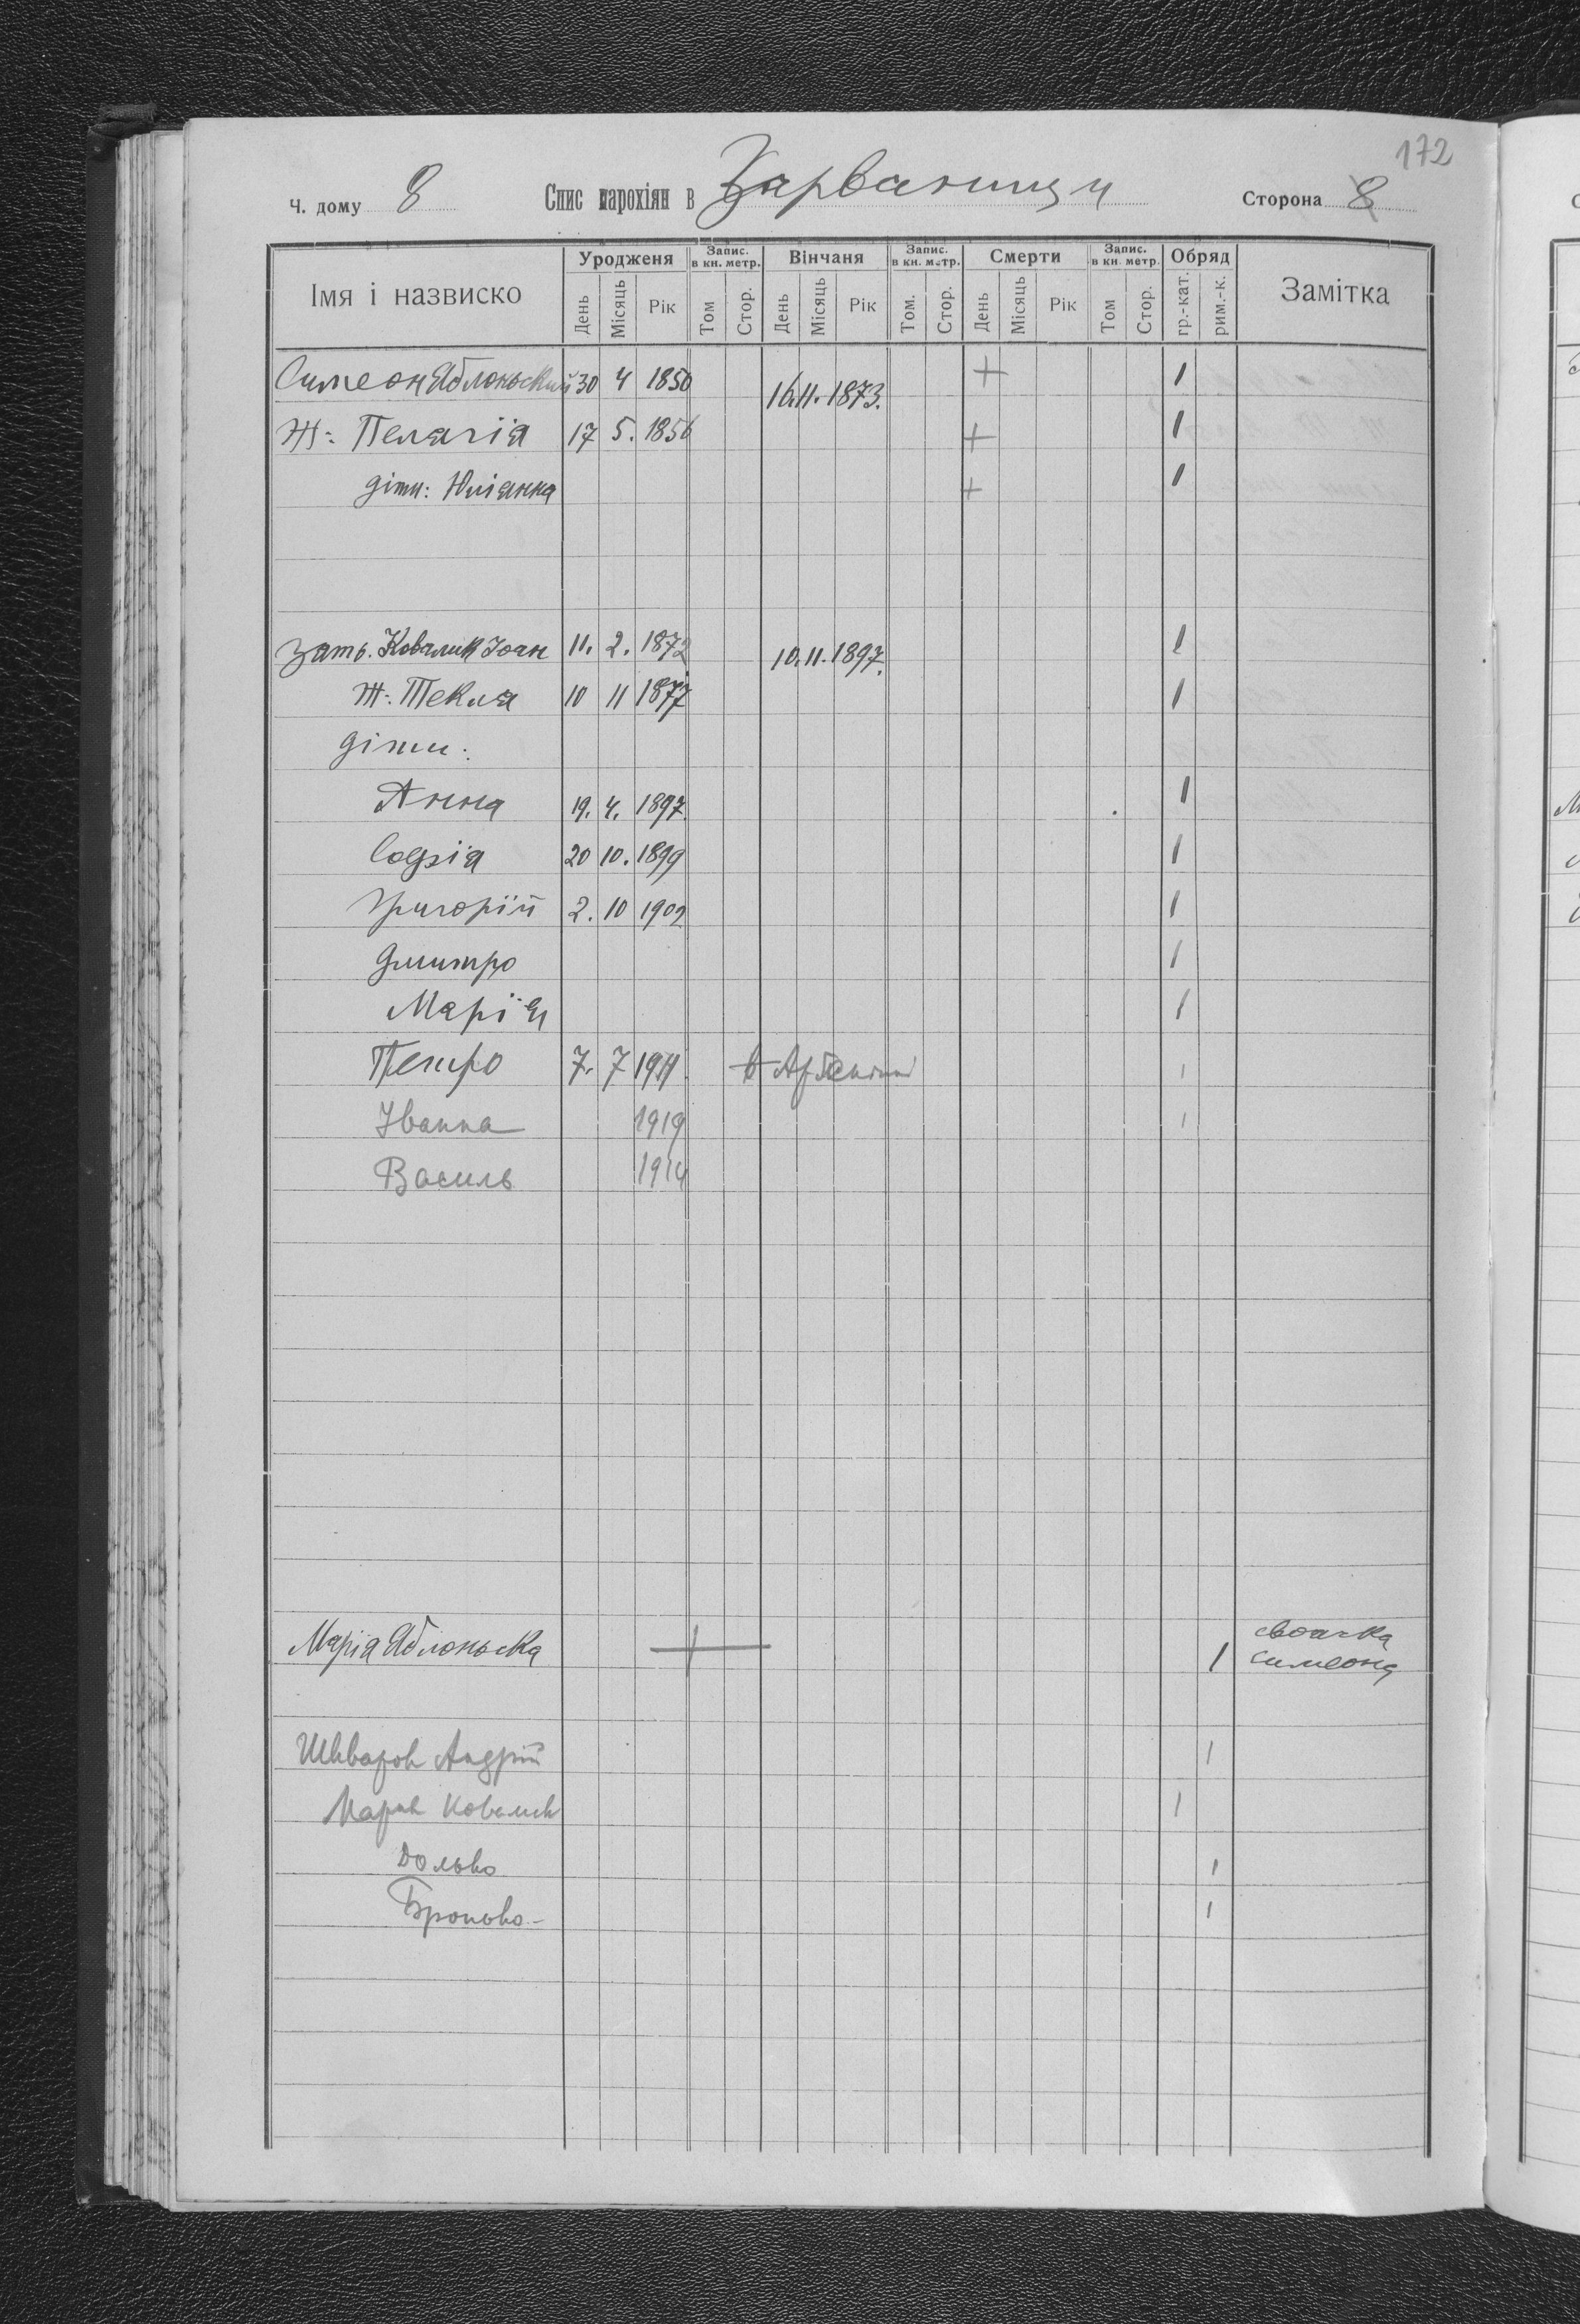 172
Ч. дому 8 Спис парохіян в Зарваници Сторона 8
Імя і назвиско Уродженя Запис. в кн. метр. Вінчаня Запис. в кн. метр. Смерти Запис. в кн. метр. Обряд Замітка
День Місяць Рік Том Стор. День Місяць Рік Том. Стор. День Місяць Рік Том Стор. гр.-кат. рим.-к.
Симеон Яблоньский 30 4 1850 16.11.1873. + 1
Ж: Пелагія 17 5. 1856 + 1
діти: Юліянна + 1
зать. Ковалик Іоан 11. 2. 1872 10.11.1897. 1
Ж: Текля 10 11 1877 1
діти:
Анна 19. 4. 1897. 1
Софія 20 10. 1899 1
Григорій 2. 10 1902 1
Дмитро 1
Марія 1
Петро 7. 7 1911 в 1
Іванна 1919 1
Василь 1914
Марія Яблоньска + 1 своячка
Симеона
Андрій 1
Ковалик 1
Долько 1
Бронько - 1